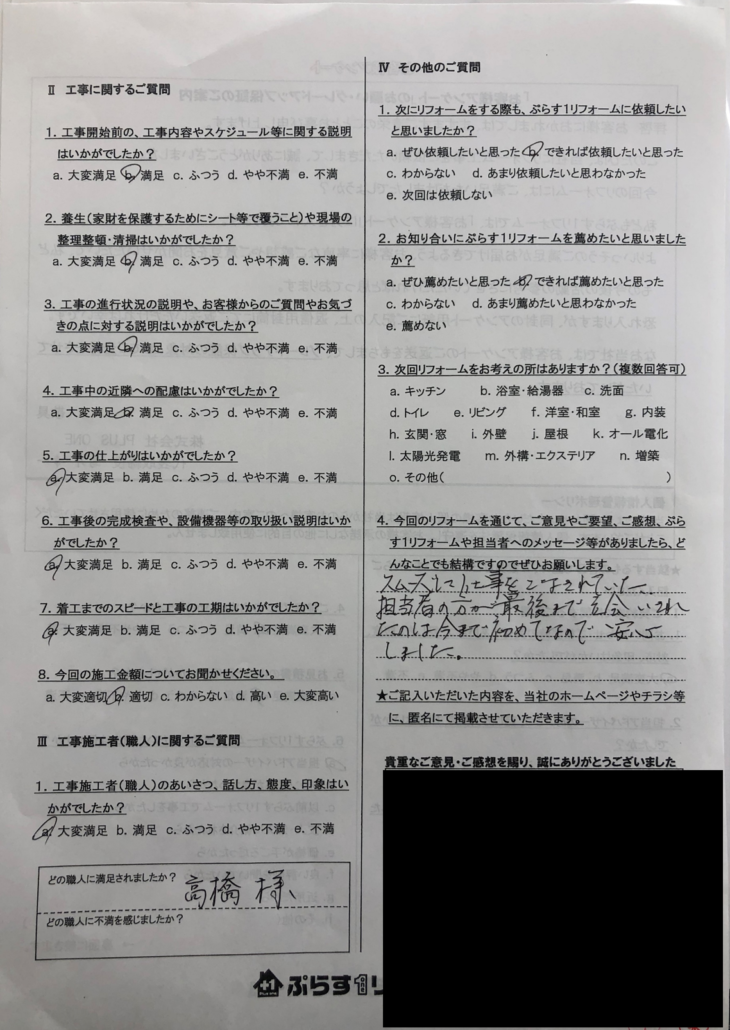 Ⅱ 工事に関するご質問
1. 工事開始前の、工事内容やスケジュール等に関する説明
はいかがでしたか？
a. 大変満足 b. 満足 c. ふつう d. やや不満 e. 不満
2. 養生(家財を保護するためにシート等で覆うこと)や現場の
整理整頓・清掃はいかがでしたか？
a. 大変満足 b. 満足 c. ふつう d. やや不満 e. 不満
3. 工事の進行状況の説明や、お客様からのご質問やお気づ
きの点に対する説明はいかがでしたか？
a. 大変満足 b. 満足 c. ふつう d. やや不満 e. 不満
4. 工事中の近隣への配慮はいかがでしたか？
a. 大変満足 b. 満足 c. ふつう d. やや不満 e. 不満
5. 工事の仕上がりはいかがでしたか？
a. 大変満足 b. 満足 c. ふつう d. やや不満 e. 不満
6. 工事後の完成検査や、設備機器等の取り扱い説明はいか
がでしたか？
a. 大変満足 b. 満足 c. ふつう d. やや不満 e. 不満
7. 着工までのスピードと工事の工期はいかがでしたか？
a. 大変満足 b. 満足 c. ふつう d. やや不満 e. 不満
8. 今回の施工金額についてお聞かせください。
a. 大変適切 b. 適切 c. わからない d. 高い e. 大変高い
Ⅲ 工事施工者(職人)に関するご質問
1. 工事施工者(職人)のあいさつ、話し方、態度、印象はい
かがでしたか？
a. 大変満足 b. 満足 c. ふつう d. やや不満 e. 不満
どの職人に満足されましたか？ 高橋 様、
どの職人に不満を感じましたか？
Ⅳ その他のご質問
1. 次にリフォームをする際も、ぷらす1リフォームに依頼したい
と思いましたか？
a. ぜひ依頼したいと思った b. できれば依頼したいと思った
c. わからない d. あまり依頼したいと思わなかった
e. 次回は依頼しない
2. お知り合いにぷらす1リフォームを薦めたいと思いました
か？
a. ぜひ薦めたいと思った b. できれば薦めたいと思った
c. わからない d. あまり薦めたいと思わなかった
e. 薦めない
3. 次回リフォームをお考えの所はありますか？(複数回答可)
a. キッチン b. 浴室・給湯器 c. 洗面
d. トイレ e. リビング f. 洋室・和室 g. 内装
h. 玄関・窓 i. 外壁 j. 屋根 k. オール電化
l. 太陽光発電 m. 外構・エクステリア n. 増築
o. その他( )
4. 今回のリフォームを通じて、ご意見やご要望、ご感想、ぷら
す1リフォームや担当者へのメッセージ等がありましたら、ど
んなことでも結構ですのでぜひお願いします。
スムーズに仕事をこなされていた。
担当者の方が最後まで立会いされ
たのは今まで初めてなので 安心
しました。
★ご記入いただいた内容を、当社のホームページやチラシ等
に、匿名にて掲載させていただきます。
貴重なご意見・ご感想を賜り、誠にありがとうございました
+1 ぷらす1リ